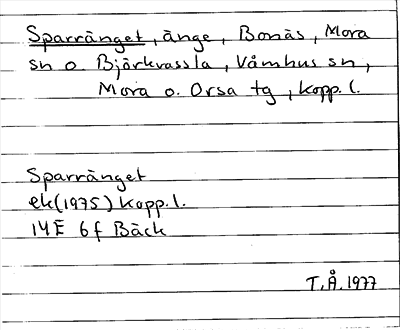 Sparränget, änge, Bonäs, Mora
sn o. Björkvassla, Våmhus sn,
Mora o. Orsa tg, Kopp. l.
Sparränget
ek (1975) Kopp. l.
14E 6f Bäck
T.Å. 1977